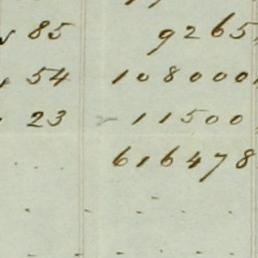 85 9265
54 108000
23 11500
616478